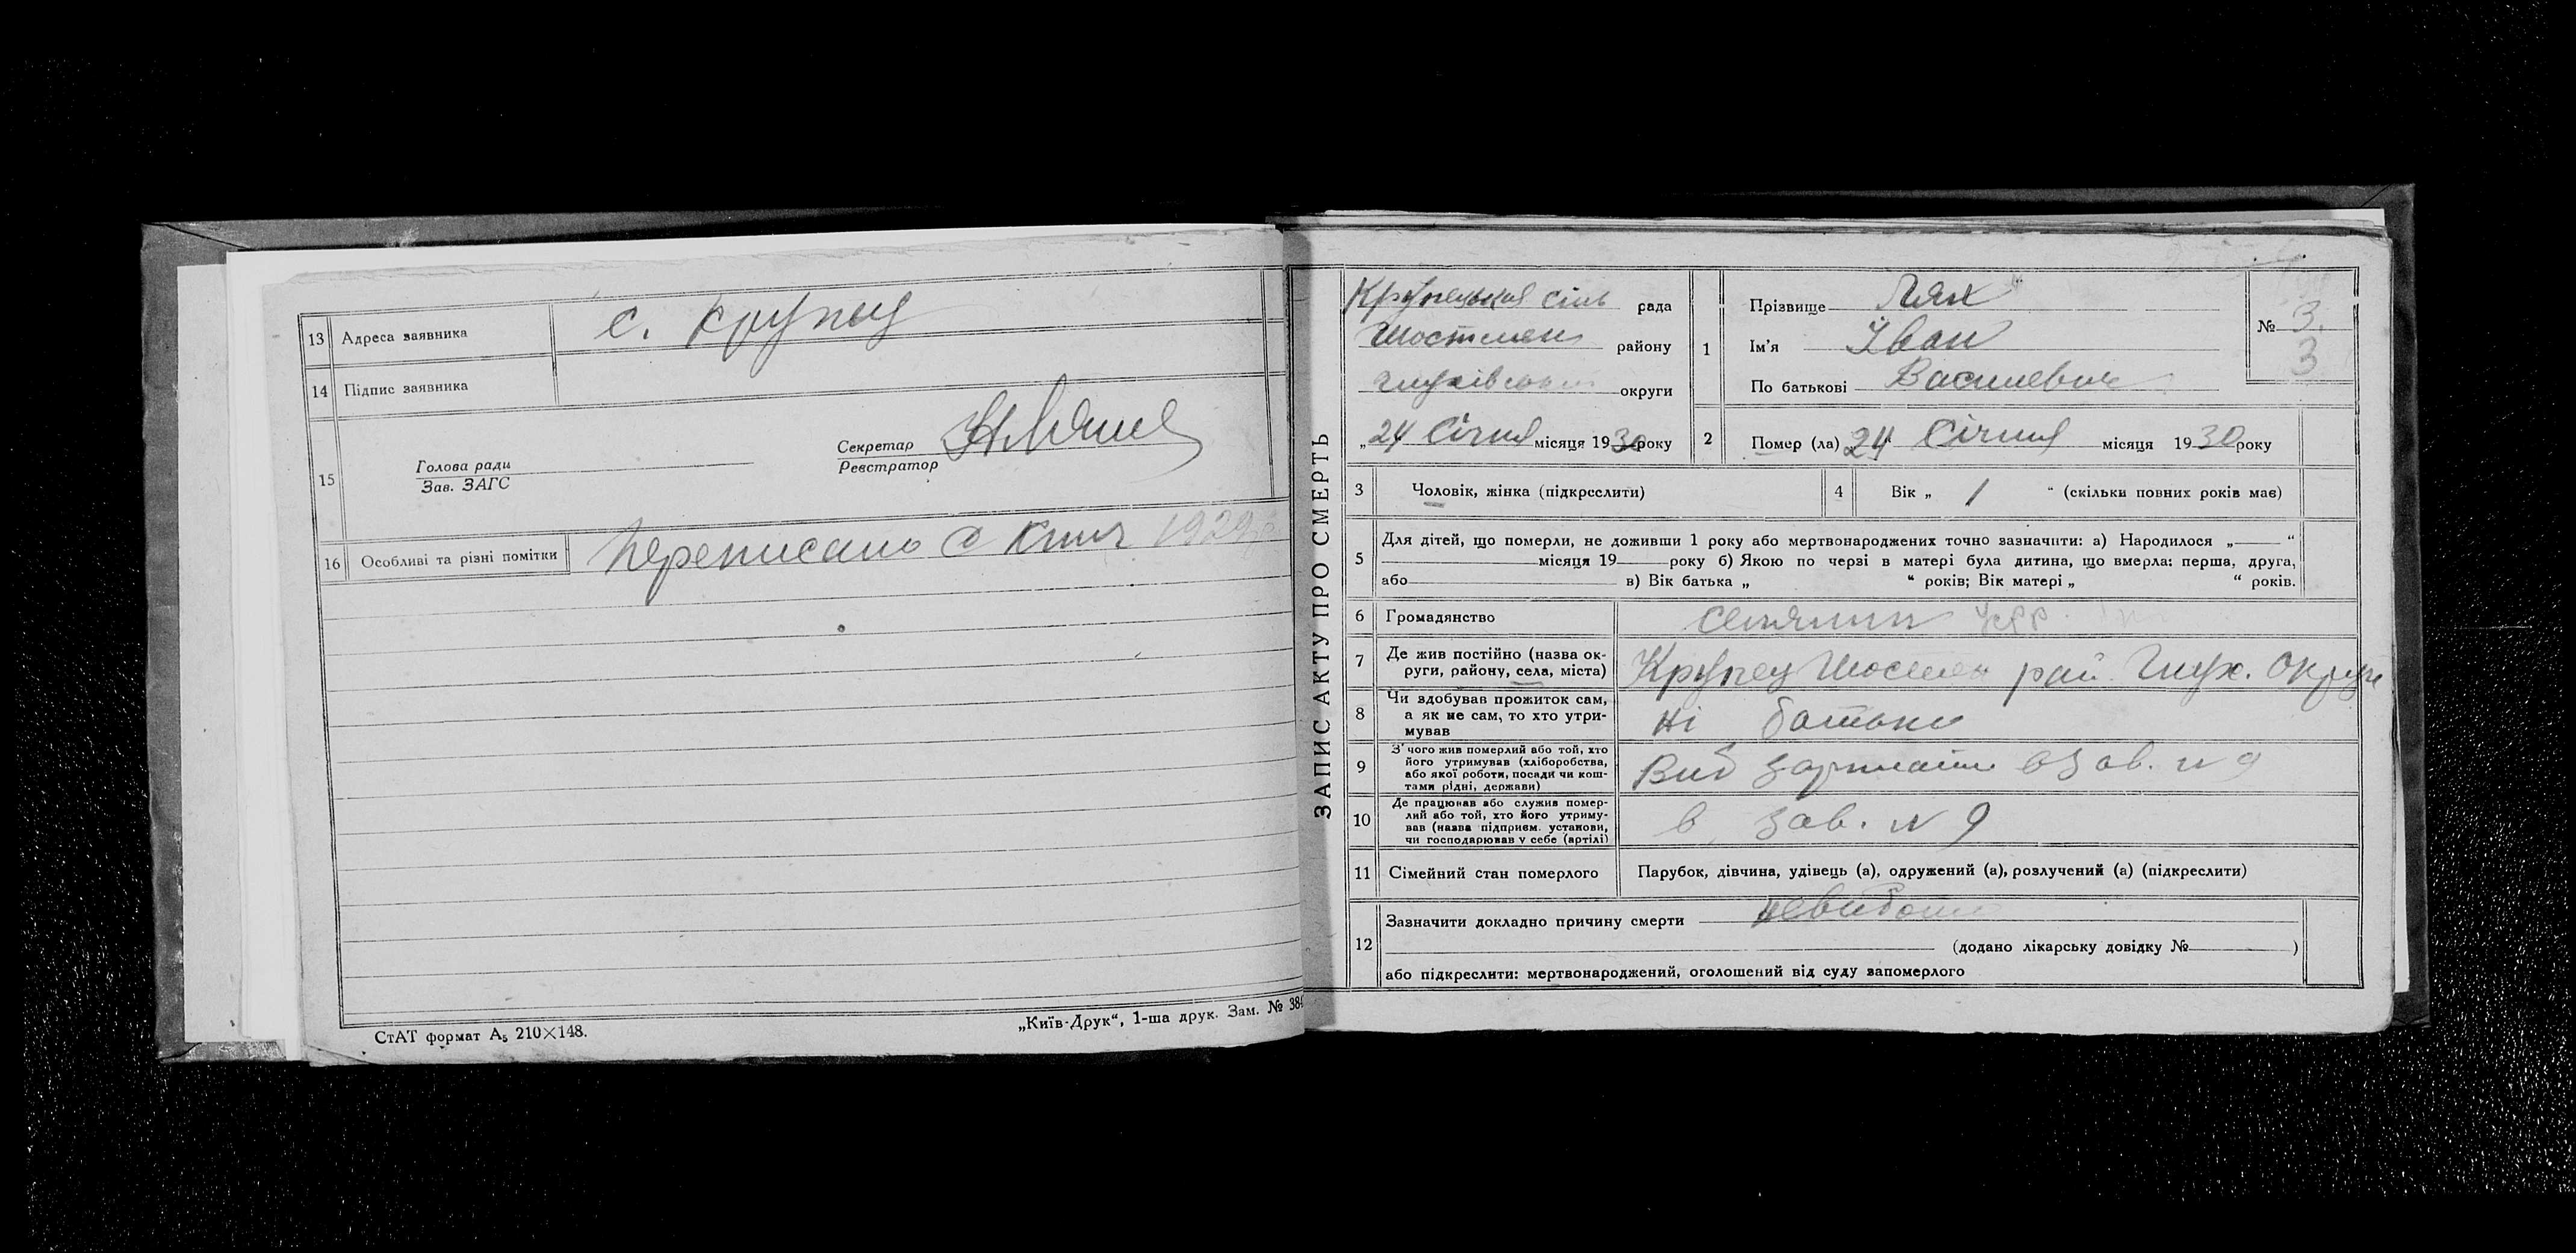 13 Адреса заявника с. Крупец
14 Підпис заявника
15 Голова ради
Зав. ЗАГС
Секретар
Реєстратор
16 Особливі та різні помітки Переписано с книг 1929
СтАТ формат А₅ 210×148.
„Київ-Друк“, 1-ша друк. Зам. № 38
ЗАПИС АКТУ ПРО СМЕРТЬ
Крупецькая сіль рада
Шостмен району
Глухівськ округи
„24 Січня місяця 1930 року
1 Прізвище Лях
Ім'я Іван
По батькові Васильевич
№ 3.
3
2 Помер (ла) 24 Січня місяця 1930 року
3 Чоловік, жінка (підкреслити)
4 Вік „ 1 “ (скільки повних років мав)
5 Для дітей, що померли, не доживши 1 року або мертвонароджених точно зазначити: а) Народилося „ “
місяця 19 року б) Якою по черзі в матері була дитина, що вмерла: перша, друга,
або в) Вік батька „ “ років; Вік матері „ “ років.
6 Громадянство селянин УСРР
7 Де жив постійно (назва ок-
руги, району, села, міста) Крупец рай. Глух. Округи
8 Чи здобував прожиток сам,
а як не сам, то хто утри-
мував Ні батьки
9 З чого жив померлий або той, хто
його утримував (хліборобства,
або якої роботи, посади чи кош-
тами рідні, держави) Вид зарплати в зав. № 9
10 Де працював або служив помер-
лий або той, хто його утриму-
вав (назва підприєм. установи,
чи господарював у себе (артілі) в зав. № 9
11 Сімейний стан померлого Парубок, дівчина, удівець (а), одружений (а), розлучений (а) (підкреслити)
12 Зазначити докладно причину смерти невидоми
(додано лікарську довідку № )
або підкреслити: мертвонароджений, оголошений від суду запомерлого